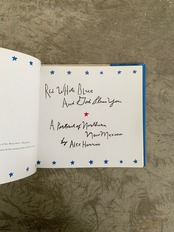 Red White Blue
And God Bless You
A Portrait of Northern
New Mexico
by Alex Harris